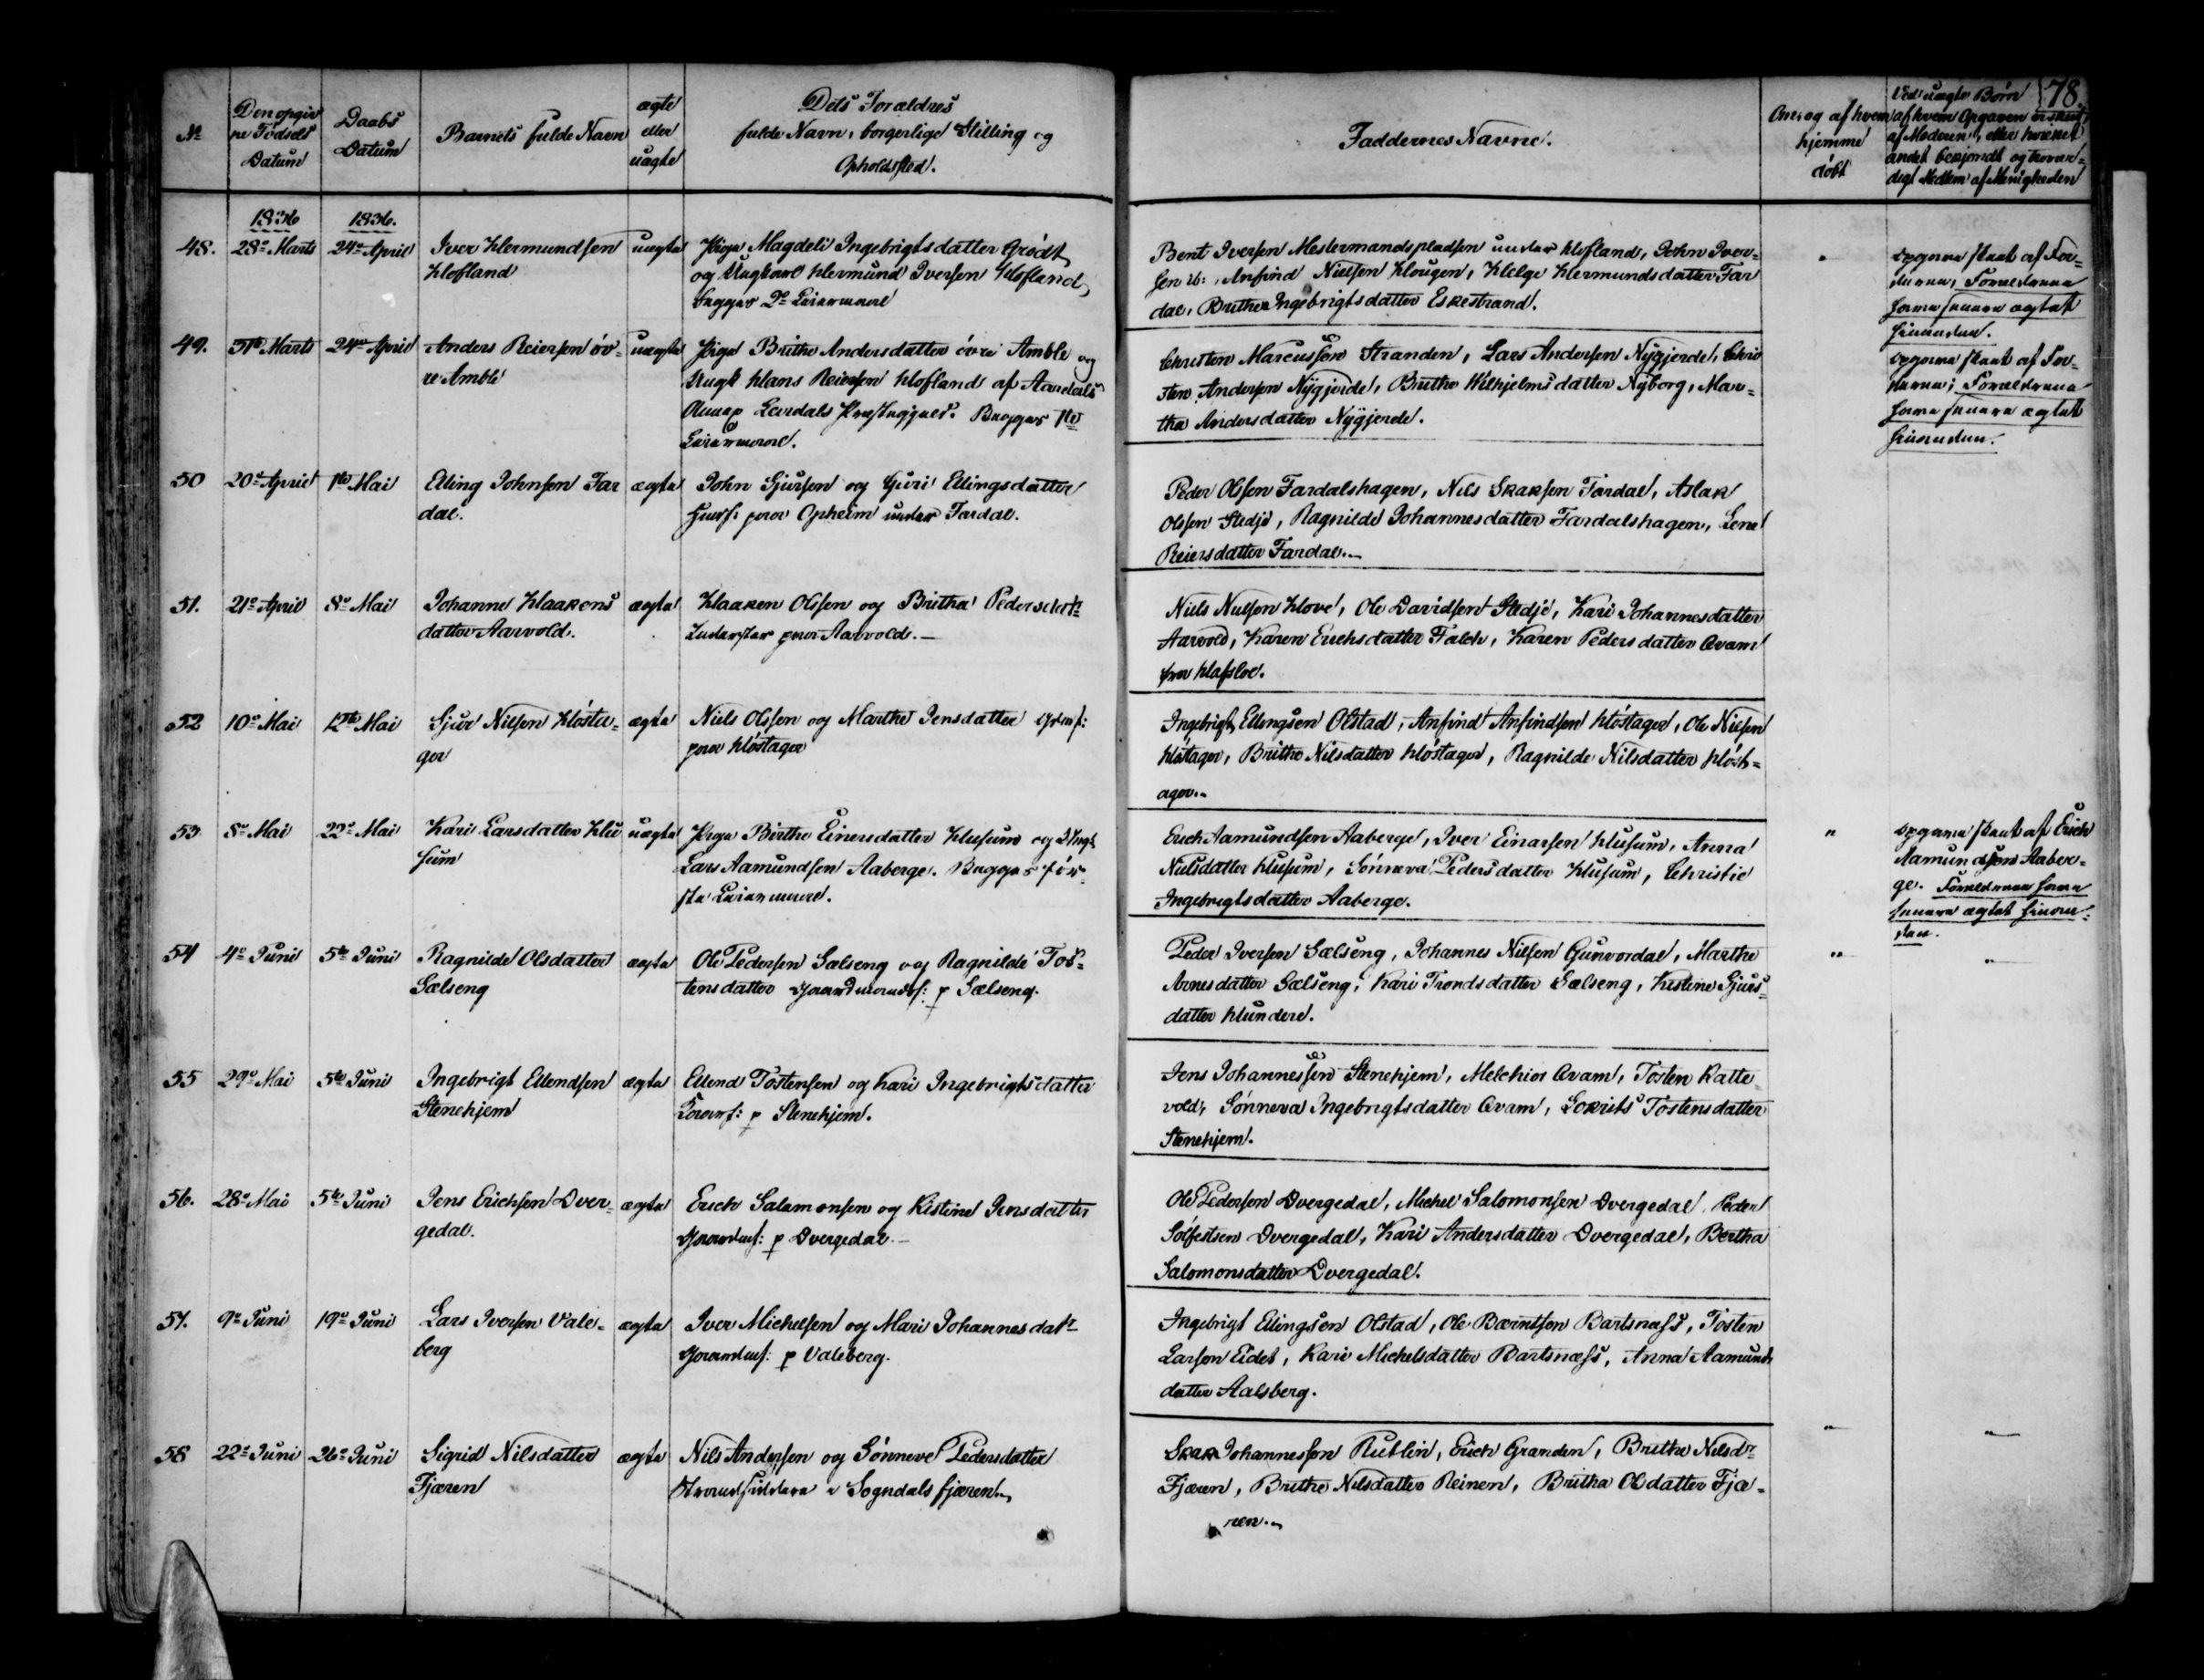 78
№
Den opgiv
ne Födsels
Datum
Daabs
Datum
Barnets fulde Navn
ægte
eller
uægte
Dets Forældres
fulde Navn, borgerlige Stilling og
Opholdssted.
Faddernes Navne.
Om, og af hvem
hjemme
döbt
Ved uægte Börn
af hvem Opgaven er skeet,
af Moderen, eller hvilket
andet bekjendt og trovær-
digt Medlem af Menigheden
1836
1836.
48.
28de Marts
24de April
Iver Hermundsen
Hofland
uægte
Pige Magdeli Ingebrigtsdatter Grödt
og Ungkarl Hermund Iversen Hofland,
begges 2de Leiermaal
Bent Iversen Mestermandspladsen under Hofland, John Iver-
sen ib:, Anfind Nielsen Hougen, Helge Hermundsdatter Far
dal, Brithe Ingebrigtsdatter Eskestrand.
Opgave skeet af For-
ældrene, Forældrene
have senere ægtet
hinanden.
49.
31te Marts
24de April
Anders Reiersen öv-
re Amble
uægte
Pige Brithe Andersdatter övre Amble og
Ungk Hans Reiersen Hofland af Aardals
Annex Leirdals Præstegjeld. Begges 1ste
Leiermaal.
Christen Marcussen Stranden, Lars Andersen Nÿgjerde, Chri
sten Andersen Nÿgjerde, Brithe Wilhjelmsdatter Nÿborg, Mar-
tha Andersdatter Nÿgjerde.
Opgave skeet af For-
ældrene; Forældrene
have senere ægtet
hinanden.
50
20de April
1ste Mai
Elling Johnsen Far
dal.
ægte
John Sjursen og Guri Ellingsdatter
Huusf: paa Opheim under Fardal.
Peder Olsen Fardalshagen, Nils Skaksen Fardal, Aslak
Olsen Stedje, Ragnilde Johannesdatter Fardalshagen, Lene
Reiersdatter Fardal.
51.
21de April
8de Mai
Johanne Haakens
datter Aarvold.
ægte
Haaken Olsen og Britha Pedersdatr
Inderster paa Aarvold.
Niels Nielsen Hove, Ole Davidsen Stedje, Kari Johannesdatter
Aarvold, Karen Erichsdatter Falch, Karen Pedersdatter Qvam
fra Hafsloe.
52
10de Mai
12te Mai
Sjur Nilsen Hösta-
ger
ægte
Niels Olsen og Marthe Jensdatter Grdmf:
paa Höstager
Ingebrigt Ellingsen Olstad, Anfind Anfindsen Höstager, Ole Nilsen
Höstager, Brithe Nilsdatter Höstager, Ragnilde Nilsdatter Höst-
ager.
53
8de Mai
22de Mai
Kari Larsdatter Hu
sum
uægte
Pige Birthe Einersdatter Husum og Ungk
Lars Aamundsen Aaberge. Begges för-
ste Leiermaal.
Erich Aamundsen Aaberge, Iver Einarsen Husum, Anna
Nielsdatter Husum, Sönneva Pedersdatter Husum, Christie
Ingebrigtsdatter Aaberge.
"
Opgave skeet af Erich
Aamundsen Aaber-
ge. Forældrene have
senere ægtet hinan-
den.
54
4de Juni
5te Juni
Ragnilde Olsdatter
Sælseng
ægte
Ole Pedersen Sælseng og Ragnilde Tos-
tensdatter Gaardmandsf: p Sælseng.
Peder Iversen Sælseng, Johannes Nilsen Gunvordal, Marthe
Arnesdatter Sælseng, Kari Trondsdatter Sælseng, Kristine Sjurs-
datter Hundere.
"
"
55
29de Mai
5te Juni
Ingebrigt Ellendsen
Stenehjem
ægte
Ellend Tostensen og Kari Ingebrigtsdatter
p Stenehjem.
Jens Johannessen Stenehjem, Melchior Qvam, Tosten Katte-
vold, Sönneva Ingebrigtsdatter Qvam, Tostensdatter
Stenehjem.
56.
28de Mai
5te Juni
Jens Erichsen Dver-
gedal.
ægte
Erich Salamonsen og Kistine Jensdatter
Gaardmf: p Dvergedal
Ole Pedersen Dvergedal, Michel Salomonsen Dvergedal, Peder
Sölfestsen Dvergedal, Kari Andersdatter Dvergedal, Bertha
Salomonsdatter Dvergedal.
57.
9de Juni
19de Juni
Lars Iversen Vale-
berg
ægte
Iver Michelsen og Mari Johannesdatr
Gaardmf: p Valeberg.
Ingebrigt Ellingsen Olstad, Ole Berntsen Bartsnæss, Tosten
Larsen Eidet, Kari Michelsdatter Bartsnæss, Anna Aamunds
datter Aalsberg.
58
22de Juni
26de Juni
Sigrid Nilsdatter
Fjæren
ægte
Nils Andersen og Sönneve Pedersdatter
Strandsiddere i Sogndals fjæren.
Skak Johannessen Rutlin, Erich Granden, Brithe Nilsdr
Fjæren, Brithe Nilsdatter Reinen, Britha Olsdatter Fjæ-
ren.
"
"